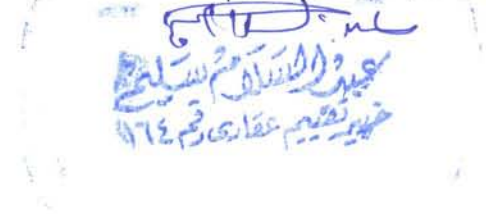 عبد السلام سليم
خبير تقييم عقارى رقم ١٦٤